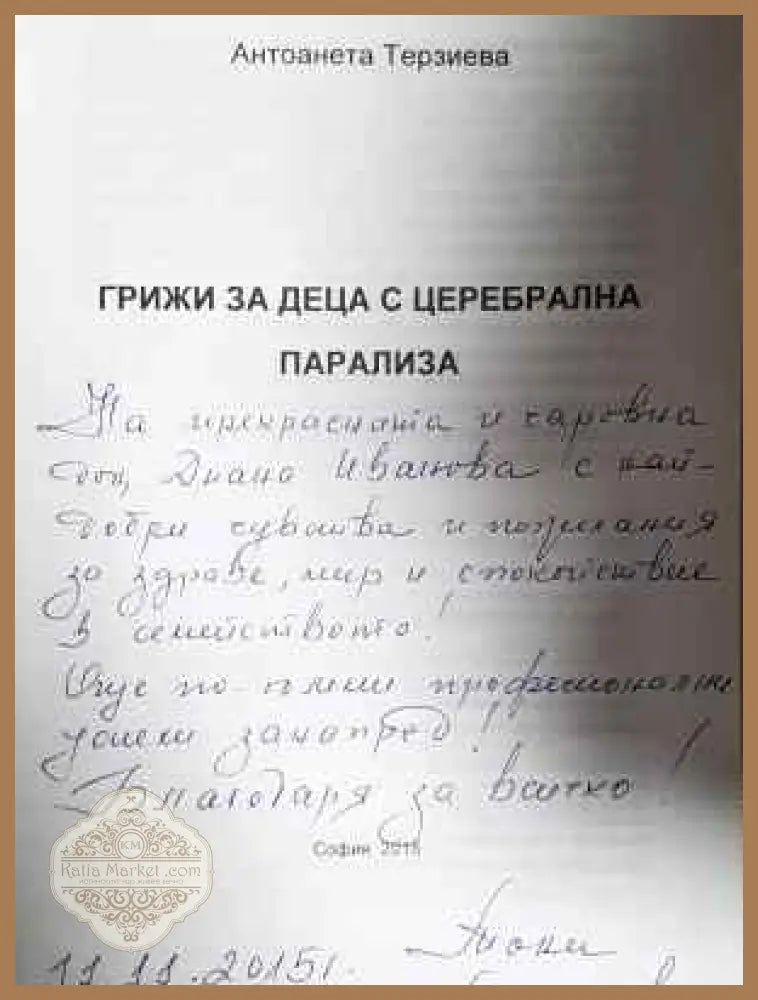 Антоанета Терзиева
ГРИЖИ ЗА ДЕЦА С ЦЕРЕБРАЛНА
ПАРАЛИЗА
На прекрасната и чаровна
доц. Диана Иванова с най-
добри чувства и пожелания
за здраве, мир и спокойствие
в семейството!
Още по големи професионални
успехи занапред!
Благодаря за всичко!
София 2015
KM
Katia Market .com
11.11.2015г.